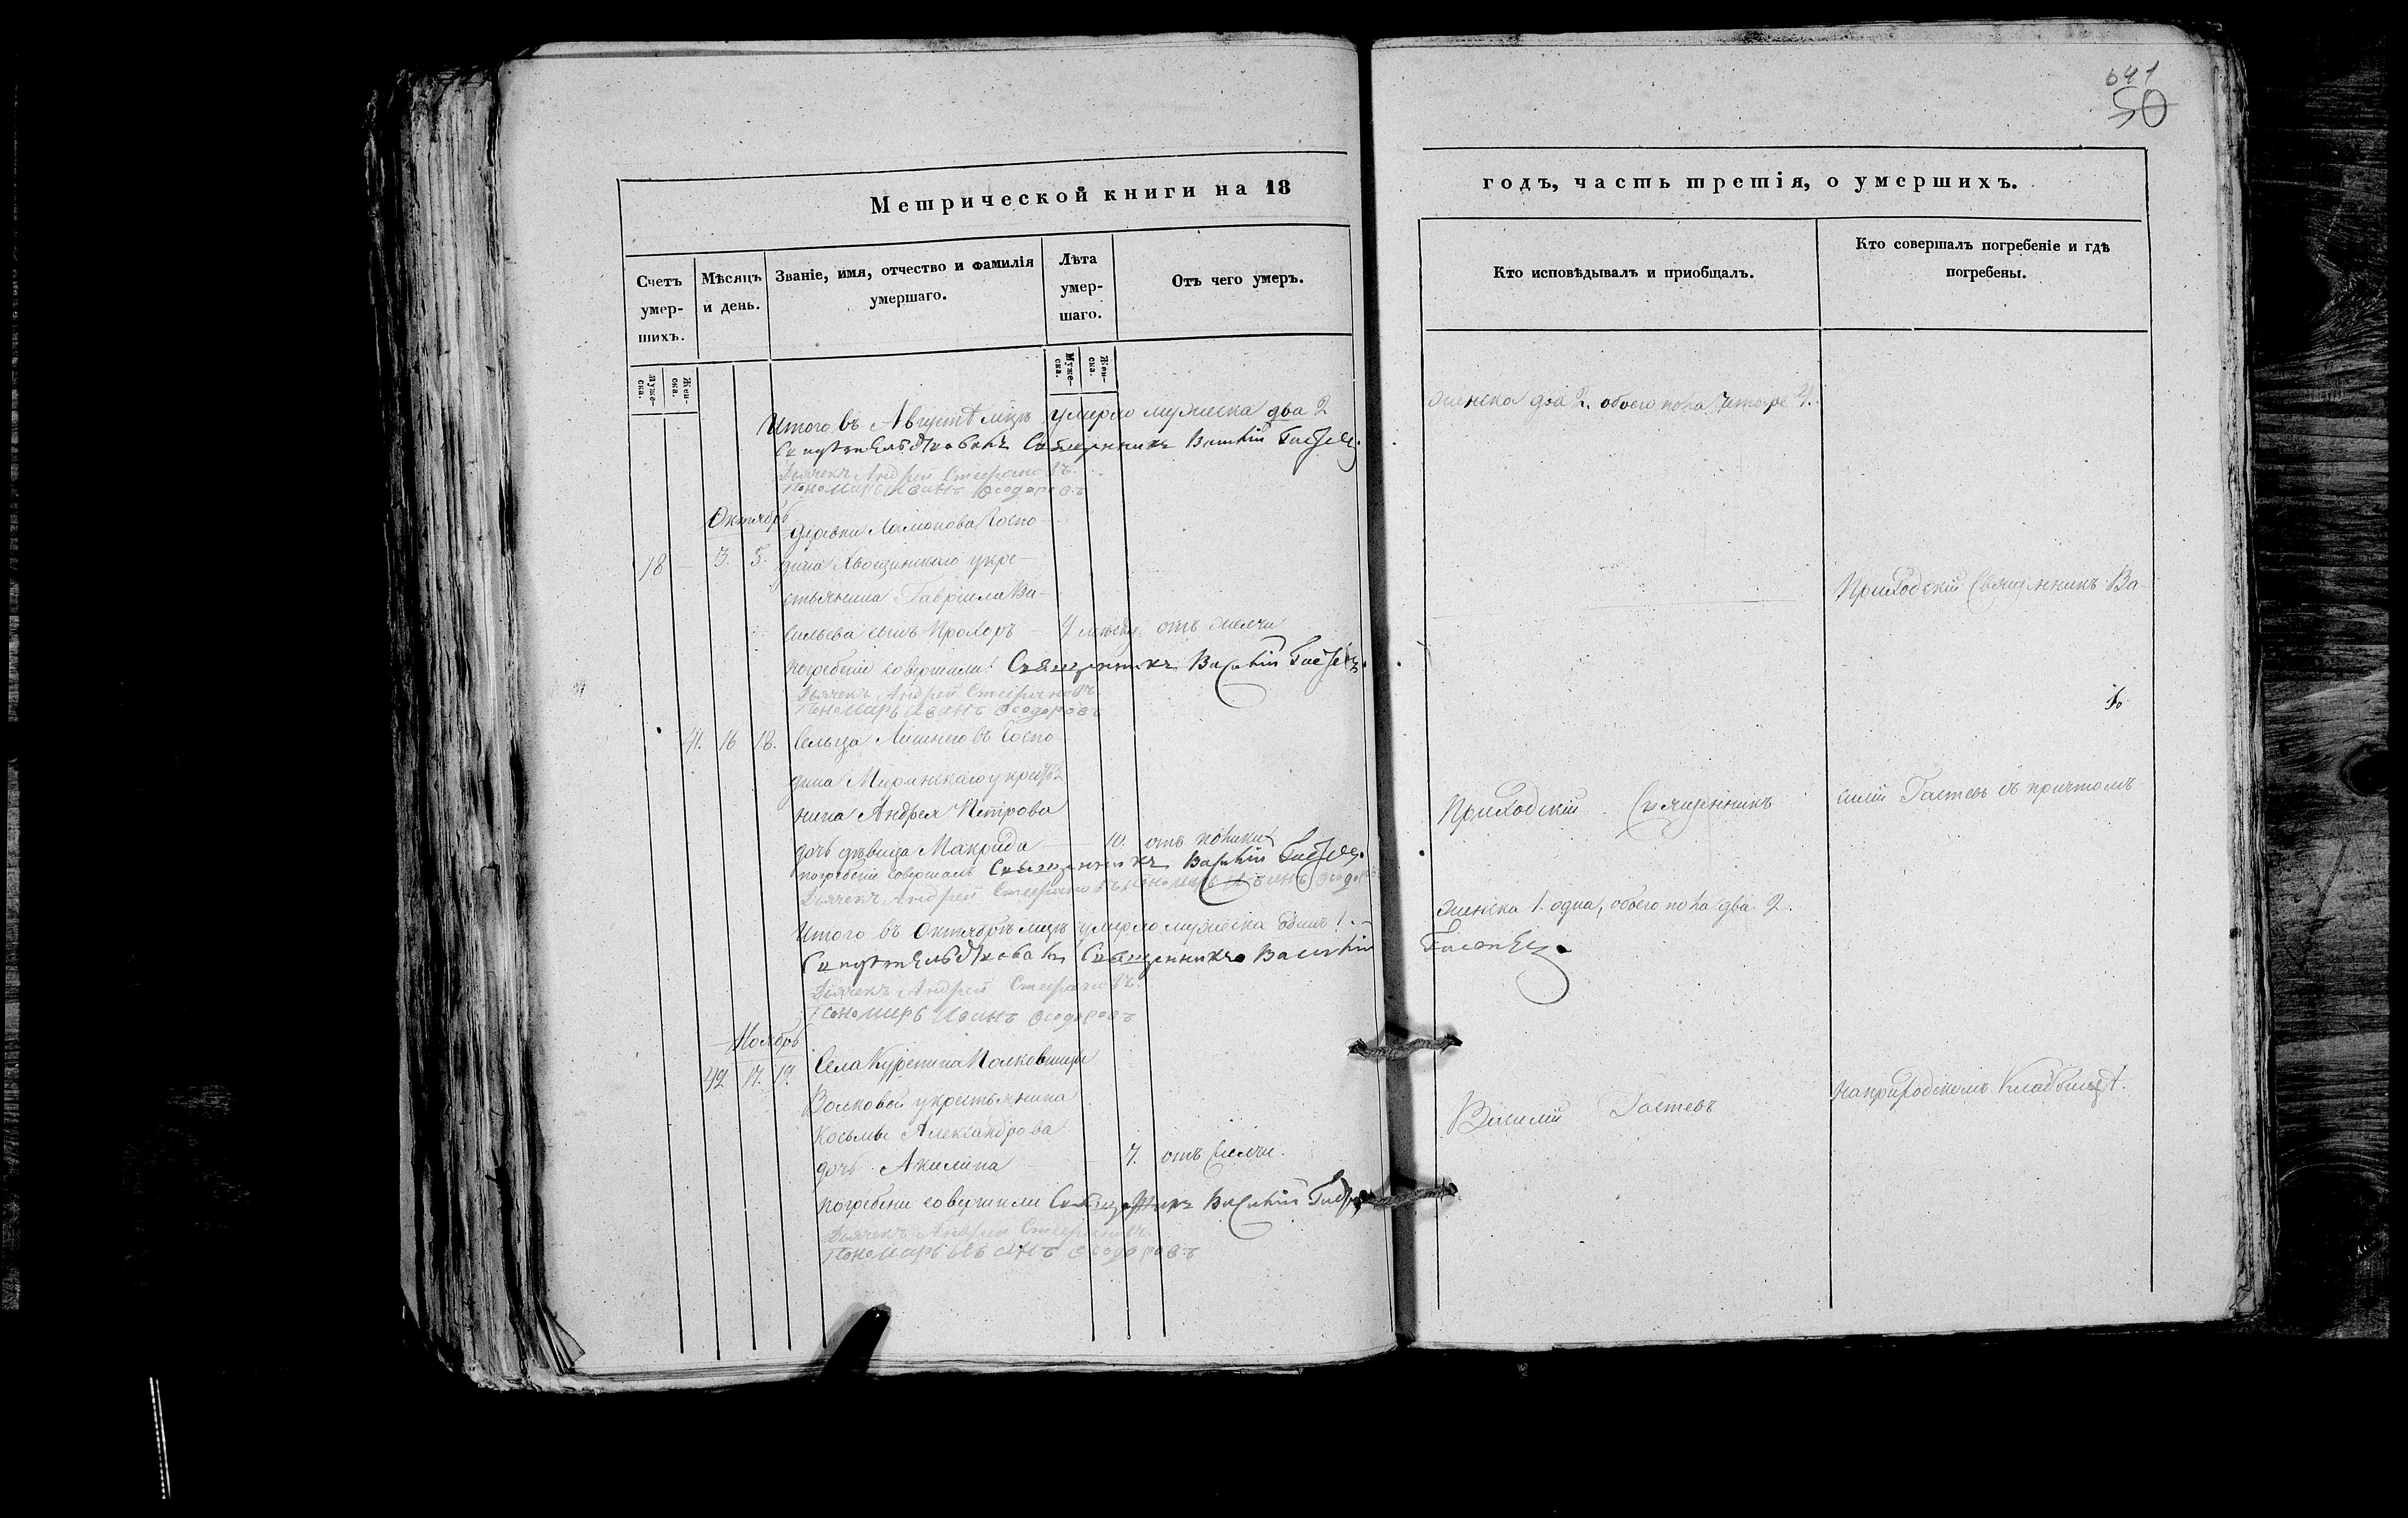 641
50
Метрической книги на 18
годъ, часть третія, о умершихъ.
Счетъ умер-шихъ.
Мѣсяцъ и день.
Званіе, имя, отчество и фамилія умершаго.
Лѣта умер-шаго.
Отъ чего умеръ.
Кто исповѣдывалъ и приобщалъ.
Кто совершалъ погребеніе и гдѣ погребены.
Муже-ска.
Жен-ска.
Муже-ска.
Жен-ска.
Итого въ Августѣ мцѣ умерло мужеска два 2
женска два 2. обоего пола четыре 4.
Свидѣтельствовалъ Священникъ Василій Гастевъ.
Дьячекъ Андрей Стефановъ.
Пономарь Иванъ Ѳеодоровъ
Октябрь
Деревни Госпо-
18 3. 5. дина Хвощинскаго у кре-
стьянина Гавріила Ва-
сильева сынъ Прохоръ отъ
погребеніе совершали: Священникъ Василій Гастевъ.
Дьячекъ Андрей Стефановъ
Пономарь Иванъ Ѳеодоровъ
41. 16 18. Сельца Госпо-
дина у крестья
нина Андрея Петрова
дочь дѣвица Макрида 10. отъ
погребеніе совершалъ Священникъ Василій Гастевъ.
Дьячекъ Андрей Стефановъ Пономарь Иванъ Ѳеодоровъ
Итого въ Октябрѣ мцѣ умерло мужеска одинъ 1.
Свидѣтельствовалъ Священникъ Василій
Дьячекъ Андрей Стефановъ.
Пономарь Иванъ Ѳеодоровъ
Ноябрь
42 17. 19. Села Полковницы
Волковой у крестьянина
Косьмы Александрова
дочь Акилина 7. отъ
погребеніе совершали Священникъ Василій Гастевъ
Дьячекъ Андрей Стефановъ
Пономарь Иванъ Ѳеодоровъ
Приходскій Священникъ
женска 1. одна, обоего пола два 2.
Гастевъ.
Василій Гастевъ
Приходскій Священникъ Ва-
силій Гастевъ съ причтомъ
на приходскомъ кладбищѣ.